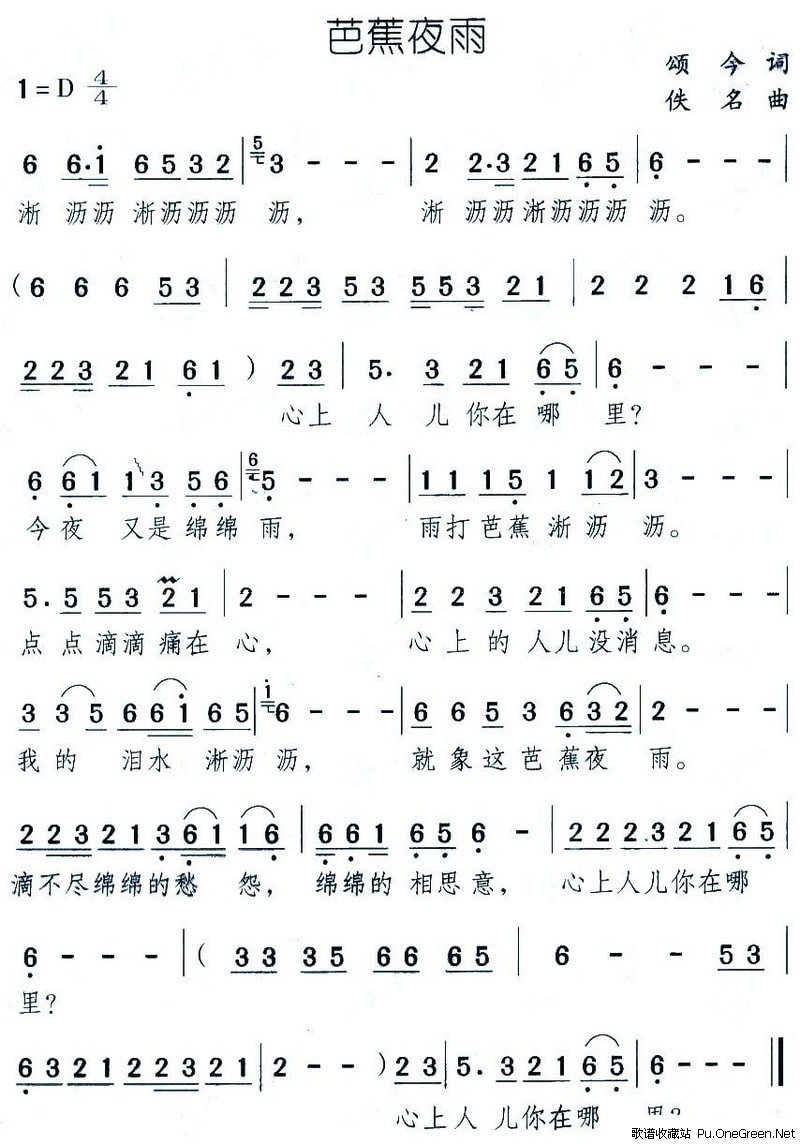 芭蕉夜雨
1=D 4/4
颂今词
佚名曲
6 6·1 6532 | 5 3 - - - | 2 2·3 2165 | 6 - - -
淅 沥沥 淅沥沥沥 沥， 淅 沥沥淅沥沥沥 沥。
(6 6 6 53 | 223 53 553 21 | 2 2 2 16
223 21 61 ) 23 | 5. 3 21 65 | 6 - - -
心上 人 儿你在哪 里?
6 61 13 56 | 6 5 - - - | 11 151 12 | 3 - - -
今夜 又是绵绵 雨， 雨打芭蕉 淅沥 沥。
5. 5 53 21 | 2 - - - | 2 2 3 21 65 | 6 - - -
点 点滴滴痛在 心， 心上的人儿没消息。
3 35 661 65 | 1 6 - - - | 6 65 3 632 | 2 - - -
我的 泪水 淅沥沥， 就象这芭蕉夜 雨。
223 21 361 16 | 661 65 6 - | 22.3 21 65
滴不尽绵绵的愁 怨， 绵绵的相思意， 心上人儿你在哪
6 - - - | ( 33 35 66 65 | 6 - 6 - 53
里?
6321 22321 | 2 - - ) 23 | 5. 321 65 | 6 - - -
心上人 儿你在哪 里?
歌谱收藏站 Pu.OneGreen.Net